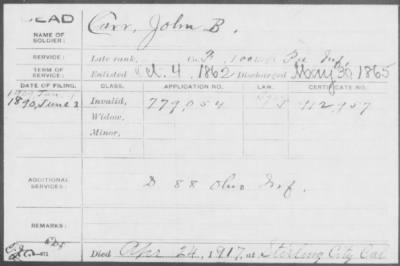 DEAD
NAME OF SOLDIER: Carr, John B.
SERVICE: Late rank, Co. 100 Inf.
TERM OF SERVICE: Enlisted 4, 1862 Discharged May 30, 1865
DATE OF FILING. CLASS. APPLICATION NO. LAW. CERTIFICATE NO.
1890, June 2 Invalid, 779,054 912,957
Widow,
Minor,
ADDITIONAL SERVICES: D 88 Ohio Inf.
REMARKS:
Died Apr 24, 1917, at Sterling City Cal